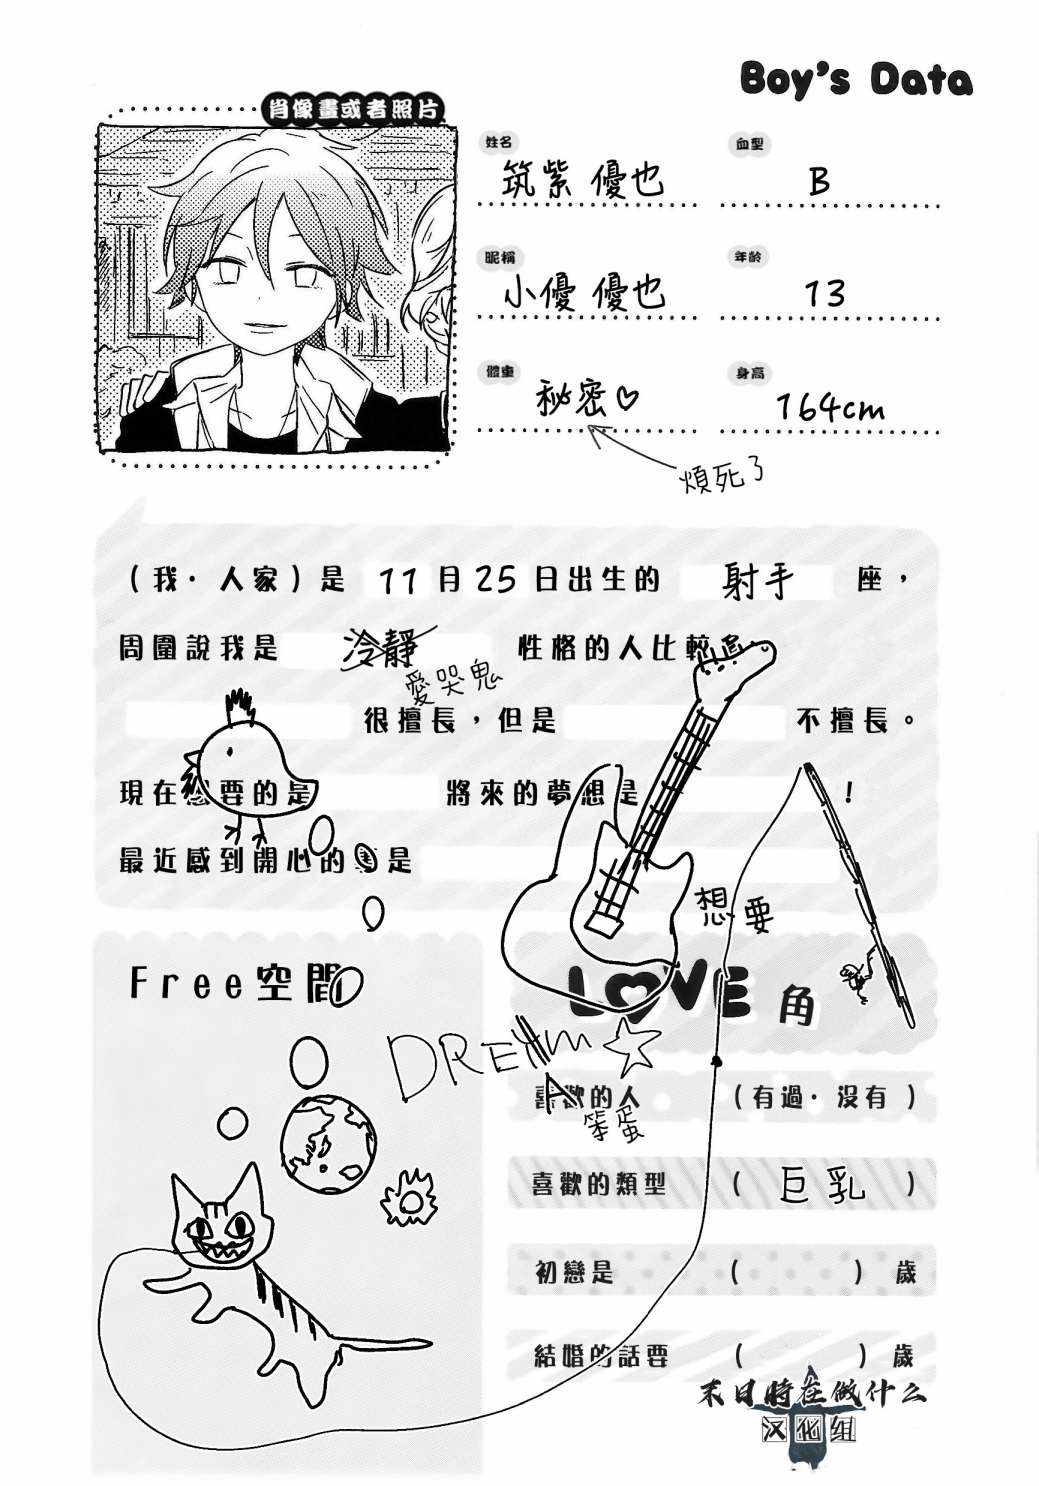 Boy's Data
肖像畫或者照片
姓名 筑紫 優也
血型 B
昵稱 小優 優也
年齡 13
體重 秘密♡
身高 164cm
煩死了
（我・人家）是 11月25日出生的 射手 座，
周圍說我是 冷靜 性格的人比較多
愛哭鬼
很擅長，但是 不擅長。
現在想要的是 將來的夢想是 ！
最近感到開心的事是
想要
Free空間
LOVE 角
DREAM
喜歡的人 （有過・沒有）
笨蛋
喜歡的類型 （巨乳）
初戀是 （ ）歲
結婚的話要 （ ）歲
末日時在做什么
汉化组